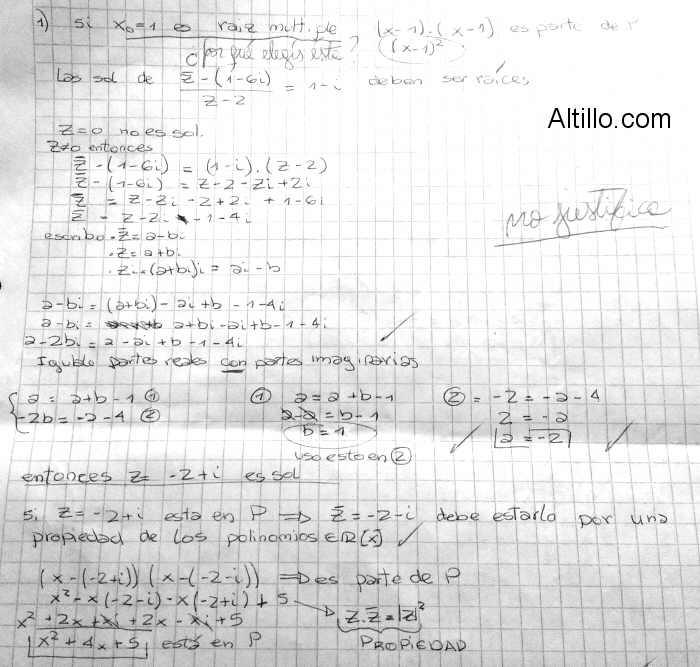 1) Si x₀=1 es raíz multiple (x-1).(x-1) es parte de P
¿por qué elegís esta? (x-1)²
Las sol de z̄-(1-6i)/z-2 = 1-i deben ser raíces
Altillo.com
z=0 no es sol.
z≠0 entonces
z̄-(1-6i) = (1-i).(z-2)
z̄-(1-6i) = z-2-zi+2i
z̄ = z-zi-2+2i+1-6i
z̄ = z-zi-1-4i
no justifica
escribo • z̄=a-bi
• z=a+bi
• zi=(a+bi)i = ai-b
a-bi = (a+bi)-ai+b-1-4i
a-bi = a+bi-ai+b-1-4i
a-2bi = a-ai+b-1-4i
Igualo partes reales con partes imaginarias
a = a+b-1 ①
-2b = -a-4 ②
① a=a+b-1
a-a=b-1
b=1
uso esto en ②
② = -2=-a-4
2=-a
a=-2
entonces z= -2+i es sol
Si z=-2+i esta en P ⇒ z̄=-2-i debe estarlo por una
propiedad de los polinomios ∈ R[x]
(x-(-2+i))(x-(-2-i)) ⇒ es parte de P
x²-x(-2-i)-x(-2+i)+5
x²+2x+xi+2x-xi+5
z.z̄=|z|²
x²+4x+5 está en P
PROPIEDAD